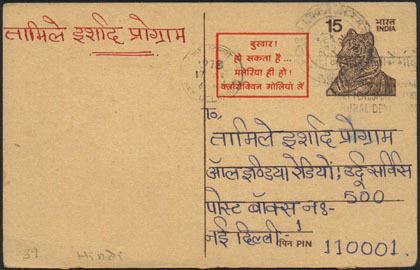 तामिले इर्शाद प्रोग्राम
बुखार!
हो सकता है...
मलेरिया ही हो!
क्लोरोक्विन गोलियां लें
15 भारत
INDIA
To,
तामिले इर्शाद प्रोग्राम
ऑल इण्डिया रेडियो, उर्दू सर्विस
पोस्ट बॉक्स नं०- 500
नई दिल्ली- 1
पिन PIN 110001
39 Hindi